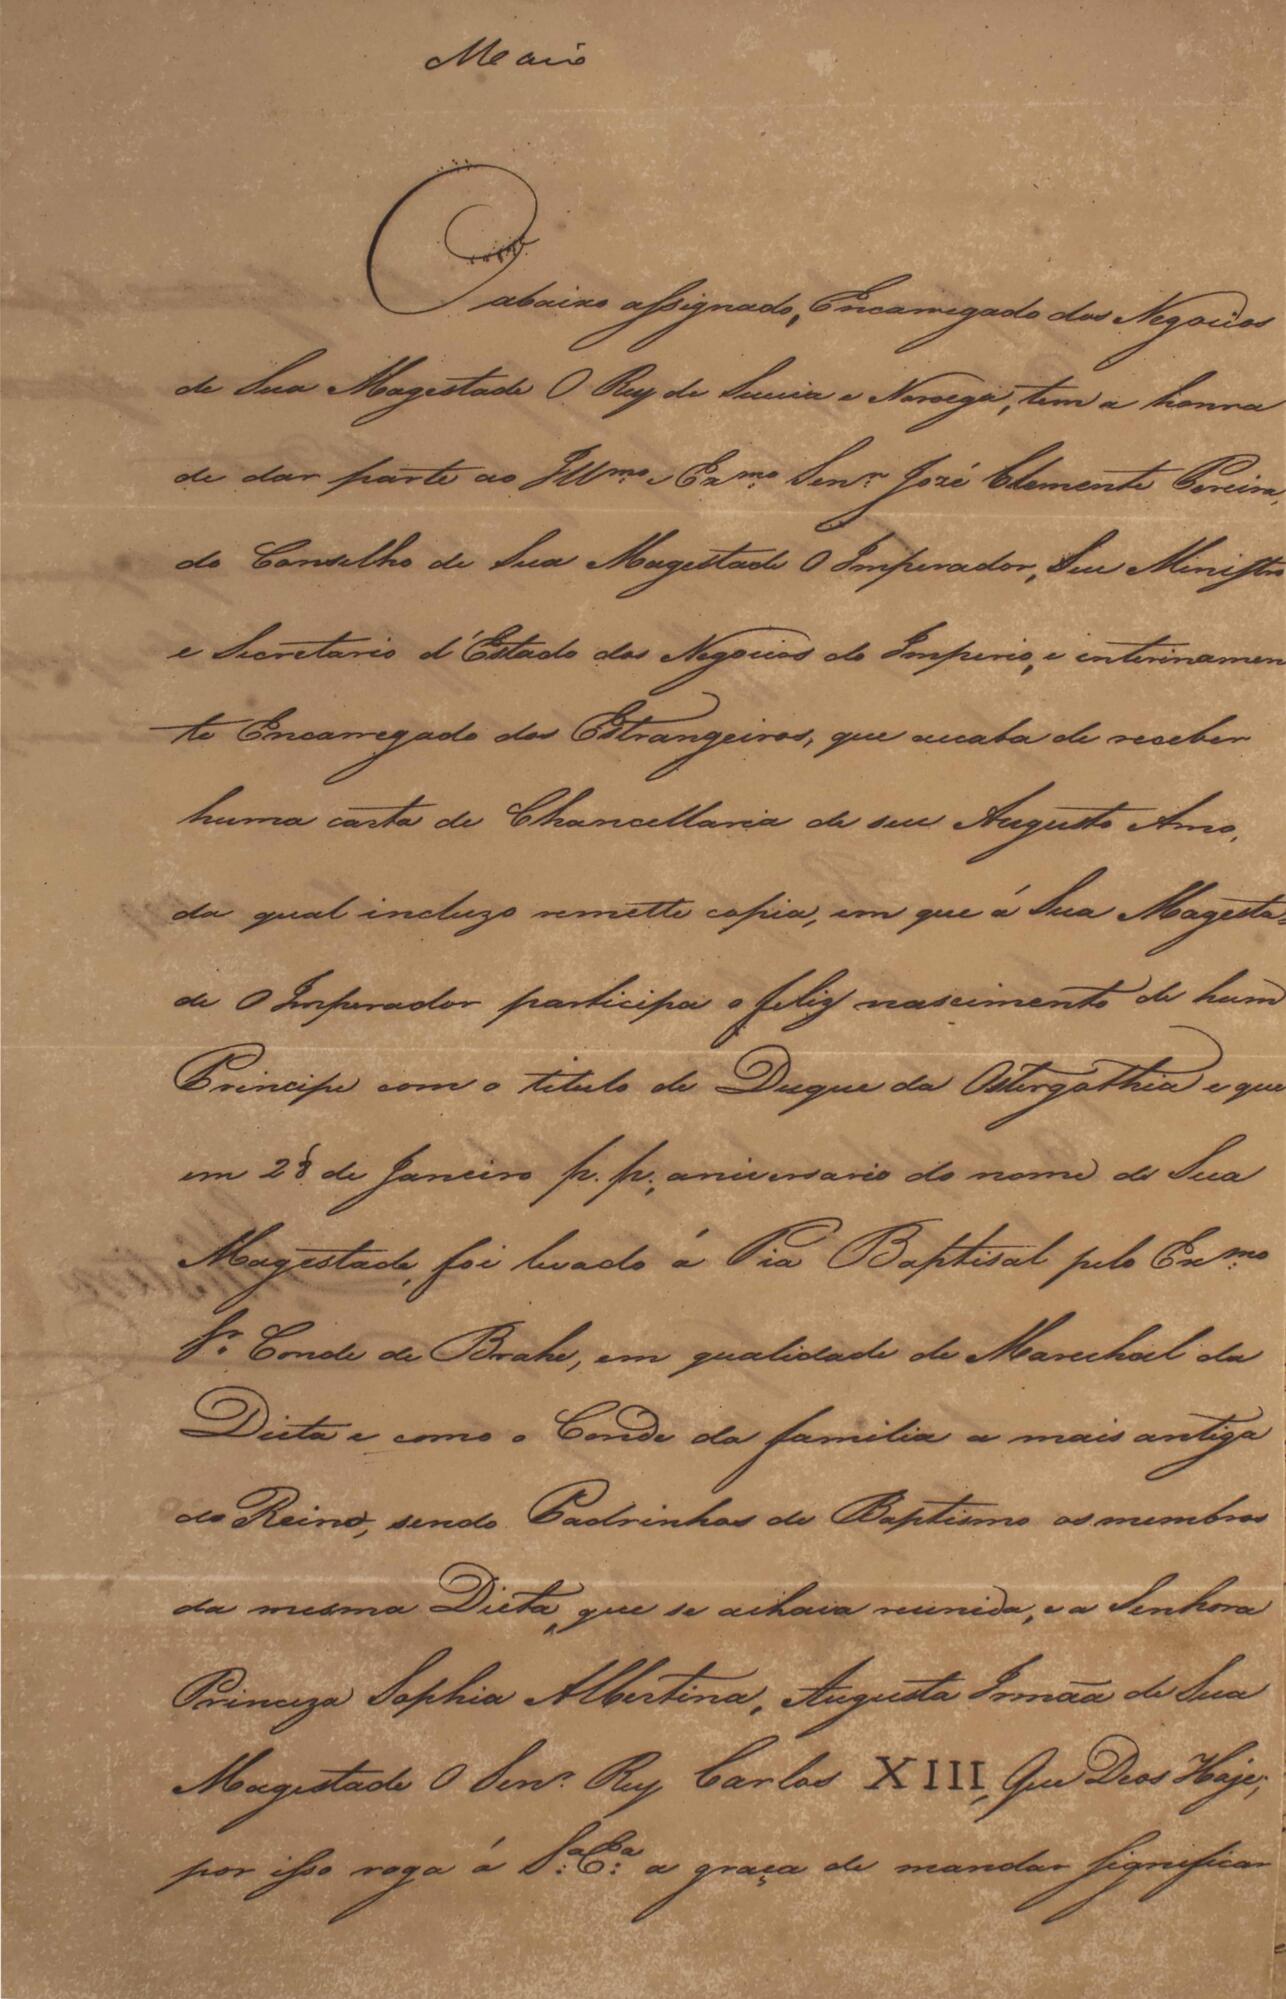 Maio
O abaixo assignado, Encarregado dos Negocios
de Sua Magestade O Rey de Suecia e Noroega, tem a honra
de dar parte ao Illmo. e Exmo. Senr. José Clemente Pereira,
do Conselho de Sua Magestade O Imperador, Seu Ministro
e Secretario d'Estado dos Negocios do Imperio, e interinamen
te Encarregado dos Estrangeiros, que acaba de receber
huma carta de Chancellaria de seu Augusto Amo,
da qual incluzo remette copia, em que á Sua Magesta-
de O Imperador participa o feliz nascimento de hum
Principe com o titulo de Duque da Ostergothia e que
em 28 de Janeiro p. p., aniversario do nome de Sua
Magestade, foi levado á Pia Baptisal pelo Exmo.
Sr. Conde de Brahe, em qualidade de Marechal da
Dieta e como o Conde da familia a mais antiga
do Reino, sendo Padrinhos de Baptismo os membros
da mesma Dieta, que se achava reunida, e a Senhora
Princeza Sophia Albertina, Augusta Irmãa de Sua
Magestade O Senr. Rey Carlos XIII, Que Deos Haje;
por isso roga á Sa. Ea. a graça de mandar significar